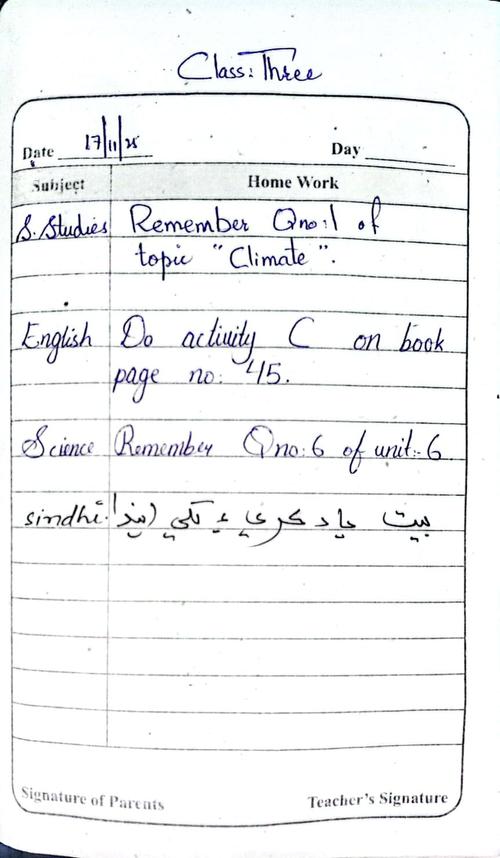 Class: Three
Date 17/11/25 Day
Subject Home Work
S.Studies Remember Qno:1 of
topic "Climate".
English Do activity C on book
page no: 45.
Science Remember Qno:6 of unit:-6
sindhi. بيت ياد ڪري ۽ لکي
Signature of Parents Teacher's Signature